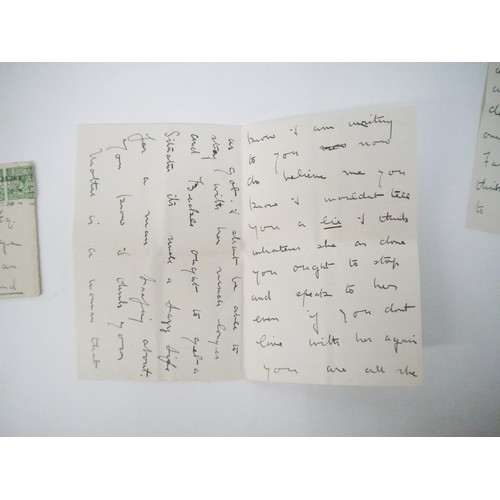 know i am writing
to you now
do believe me you
know i wouldnt tell
you a lie i think
whatever she as done
you ought to stop
and speak to her
even if you dont
live with her again
you are all she
as got. i shant be able to
stay with her much longer
and ought to get a
its such a lazy life
for a man loafing about.
you know i think your
Mother is a woman that